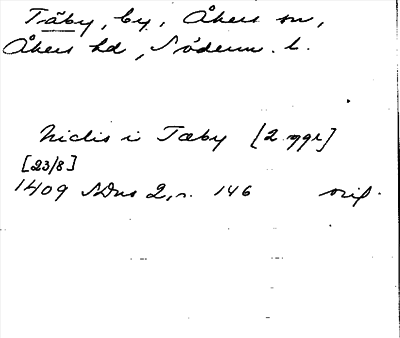 Täby, by, Åkers sn,
Åkers hd, Söderm. l.
Niclis i Tæby [2 ggr]
[23/8]
1409 SDns 2, s. 146 orig.